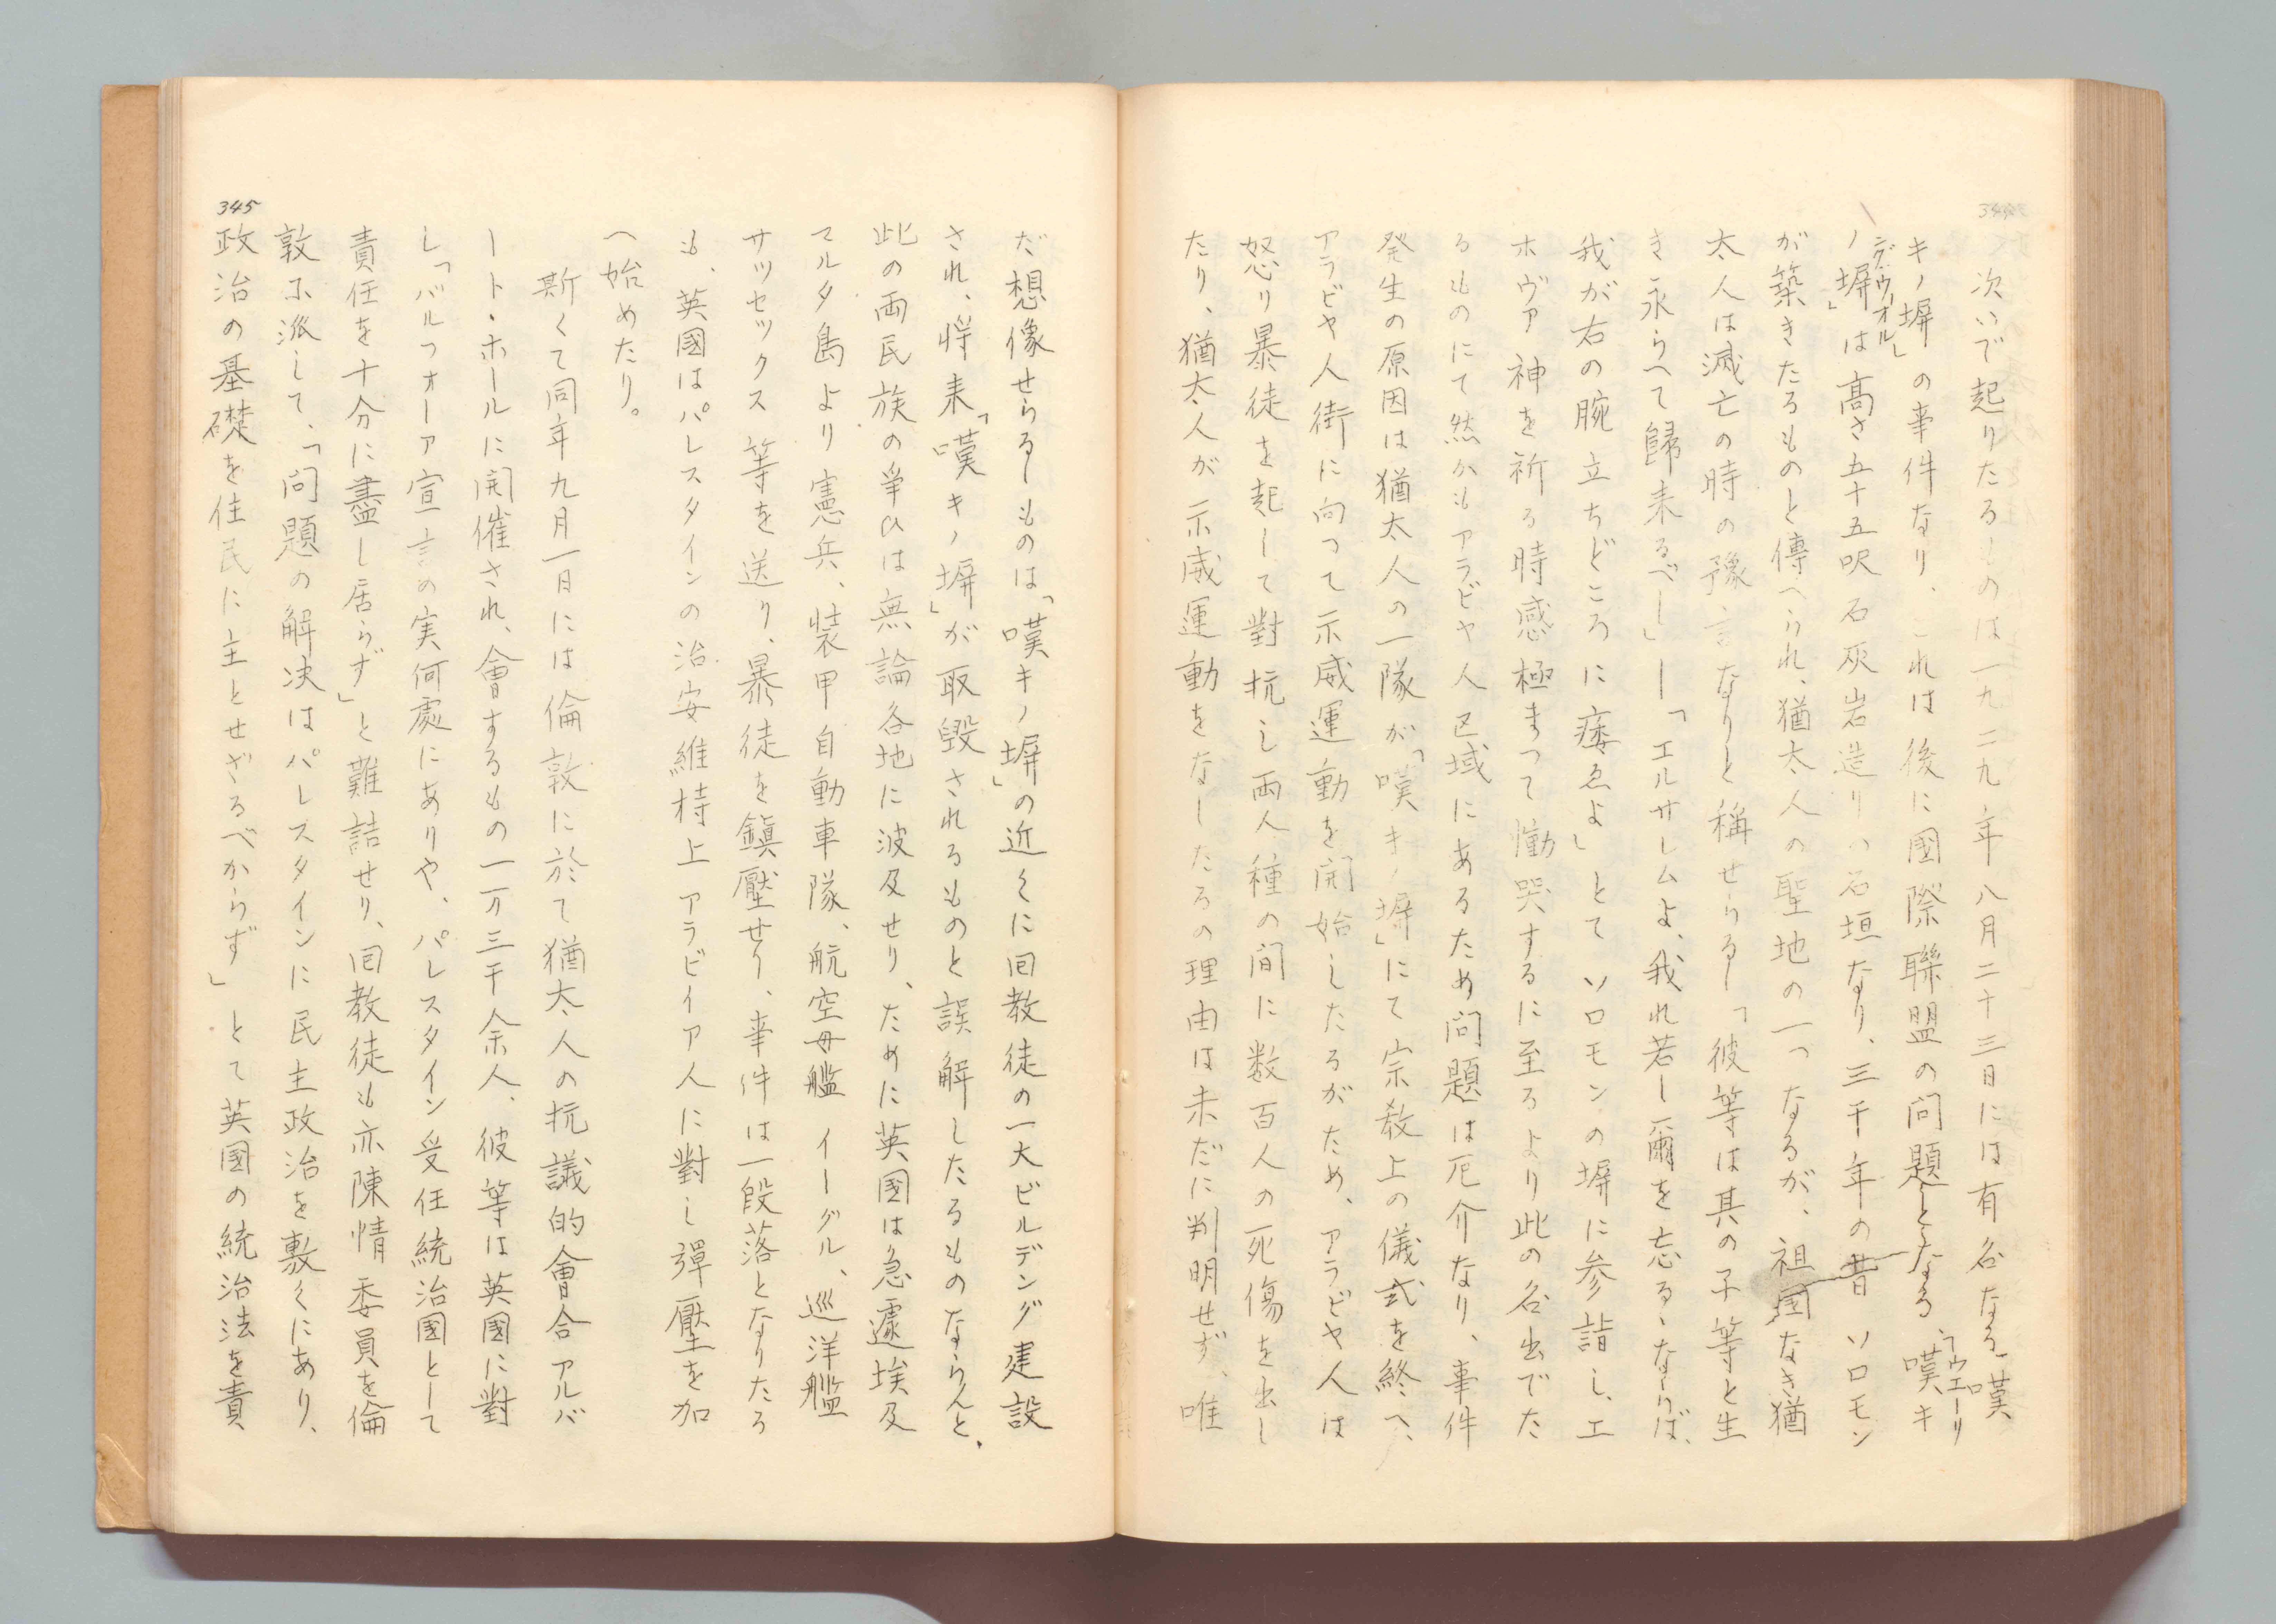 次いで起りたるものは一九二九年八月二十三日には有名なる「嘆
キノ塀」の事件なり、これは後に國際聯盟の問題となる、「嘆キ
ウエーリ
ング・ウオール
ノ塀」は高さ五十五呎石灰岩造りの石垣なり、三千年の昔ソロモン
が築きたるものと傳へられ、猶太人の聖地の一つなるが、祖國なき猶
太人は滅亡の時の豫言なりと稱せらるゝ「彼等は其の子等と生
き永らへて歸来るべし」―「エルサレムよ、我れ若し爾を忘るゝならば、
我が右の腕立ちどころに痿ゑよ」とてソロモンの塀に参詣し、エ
ホヴァ神を祈る時感極まつて慟哭するに至るより此の名出でた
るものにて然かもアラビヤ人区域にあるため問題は厄介なり、事件
発生の原因は猶太人の一隊が「嘆キノ塀」にて宗教上の儀式を終へ、
アラビヤ人街に向つて示威運動を開始したるがため、アラビヤ人は
怒り暴徒を起して對抗し両人種の間に数百人の死傷を出し
たり、猶太人が示威運動をなしたるの理由は未だに判明せず、唯
だ想像せらるゝものは「嘆キノ塀」の近くに回教徒の一大ビルデング建設
され、将来「嘆キノ塀」が取毀されるものと誤解したるものならんと、
此の両民族の爭ひは無論各地に波及せり、ために英國は急遽埃及
マルタ島より憲兵、装甲自動車隊、航空母艦イーグル、巡洋艦
サツセツクス等を送り、暴徒を鎭壓せり、事件は一段落となりたる
も、英國はパレスタインの治安維持上アラビイア人に對し彈壓を加
へ始めたり。
斯くて同年九月一日には倫敦に於て猶太人の抗議的會合アルバ
ート・ホールに開催され、會するもの一万三千余人、彼等は英國に對
し「バルフオーア宣言の実何處にありや、パレスタイン受任統治國として
責任を十分に盡し居らず」と難詰せり、回教徒も亦陳情委員を倫
敦に派して、「問題の解決はパレスタインに民主政治を敷くにあり、
345
政治の基礎を住民に主とせざるべからず」とて英國の統治法を責